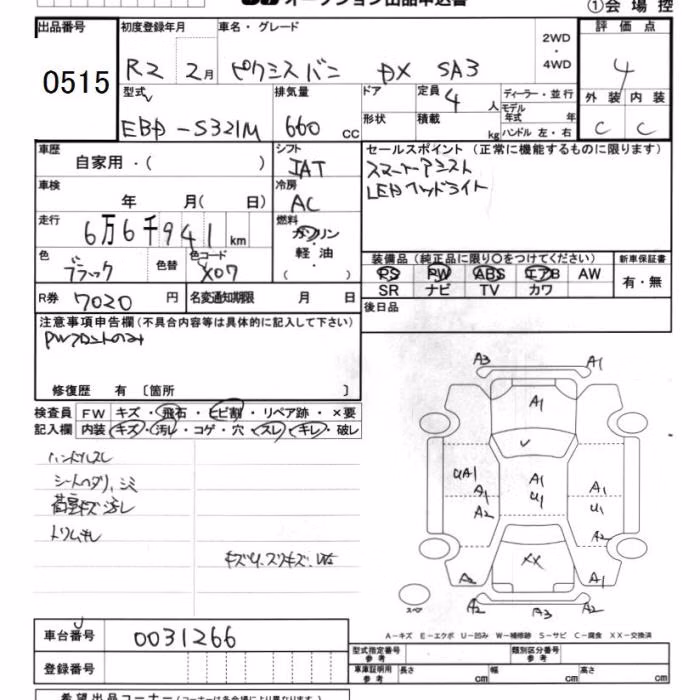 オークション出品申込書
①会場控
出品番号 初度登録年月 車名・グレード 評価点
0515 R2 2月 ピクシスバン DX SA3 2WD・4WD 4
型式 排気量 ドア 定員 4人 ディーラー・並行 外装 内装
EBD-S321M 660cc 形状 積載 kg モデル年式 年 C C
ハンドル 左・右
車歴 自家用・( ) シフト IAT セールスポイント (正常に機能するものに限ります)
スマートアシスト
車検 年 月( 日) 冷房 AC LEDヘッドライト
走行 6万6千941km 燃料 ガソリン・軽油・( )
色 ブラック 色替 色コード X07 装備品 (純正品に限り○をつけてください) 新車保証書
PS PW ABS エアB AW 有・無
SR ナビ TV カワ
R券 7020円 名変通知期限 月 日 後日品
注意事項申告欄 (不具合内容等は具体的に記入して下さい)
PWフロントのみ
修復歴 有 〔箇所 〕
検査員記入欄 FW キズ・飛石・ヒビ割・リペア跡・×要
内装 キズ・汚レ・コゲ・穴・スレ・キレ・破レ
ハンドルスレ
シートヘタリ、シミ
荷室キズ汚レ
トリムキレ
A3 A1
A1
UA1 A1 A1
A1 U1 U1
A2 A2
XX
A2 A1
スペア A2 A3 A2
A-キズ E-エクボ U-凹み W-補修跡 S-サビ C-腐食 XX-交換済
車台番号 0031266 型式指定番号 参考 類別区分番号 参考
登録番号 車庫証明用 参考 長さ cm 幅 cm 高さ cm
希望出品コーナー